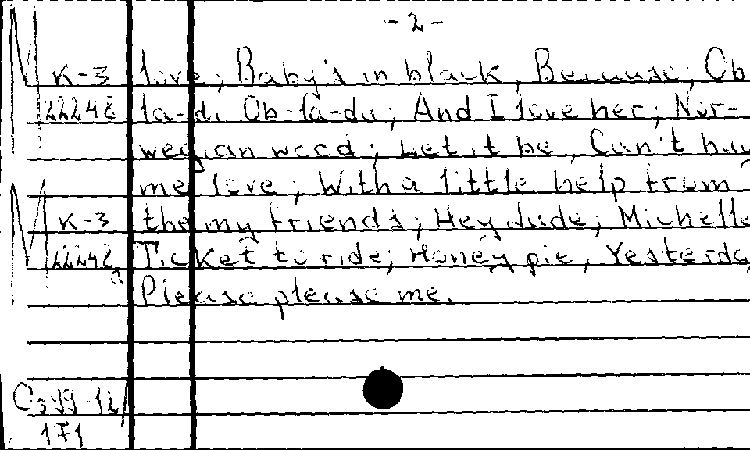 -2-
K-3 love; Baby's in black, Because; Ob
22248 la-di Ob-la-da; And I love her; Nor-
wegian wood; Let it be, Can't buy
me love; With a little help from
K-3 the my friends; Hey Jude; Michelle
22248a Ticket to ride; Honey pie, Yesterda
Please please me.
171